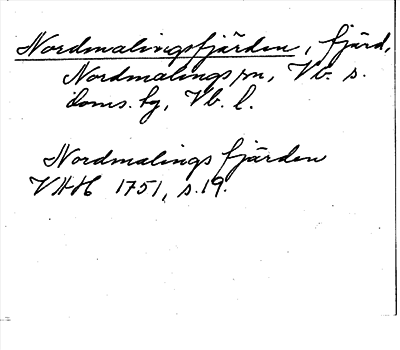 Nordmalingsfjärden, fjärd,
Nordmalings sn, Vb. s.
doms. hg, Vb. l.
Nordmalings fjärden
VAH 1751, s. 19.